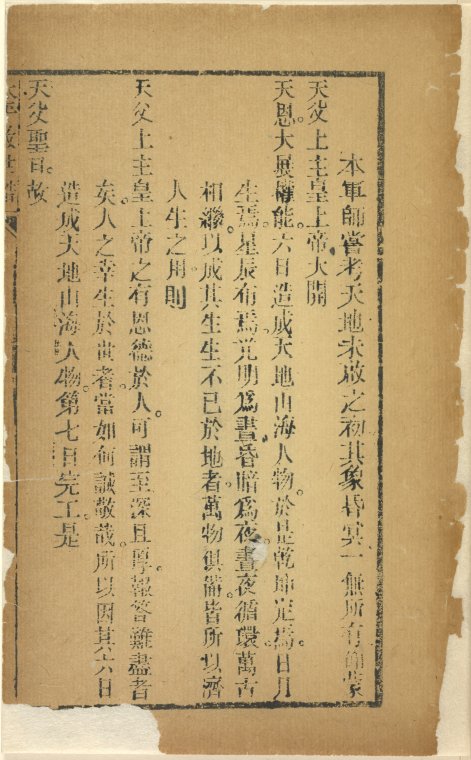 本軍師嘗考天地未啟之初其象昏冥一無所有仰蒙
天父上主皇上帝大開
天恩大展權能六日造成天地山海人物於是乾坤定焉日月
生焉星辰布焉光明為晝昏暗為夜晝夜循環萬古
相繼以成其生生不已於地者萬物俱備皆所以濟
人生之用則
天父上主皇上帝之有恩德於人可謂至深且厚報答難盡者
矣人之幸生於世者當如何誠敬哉所以因其六日
造成天地山海人物第七日完工是
天父聖日故